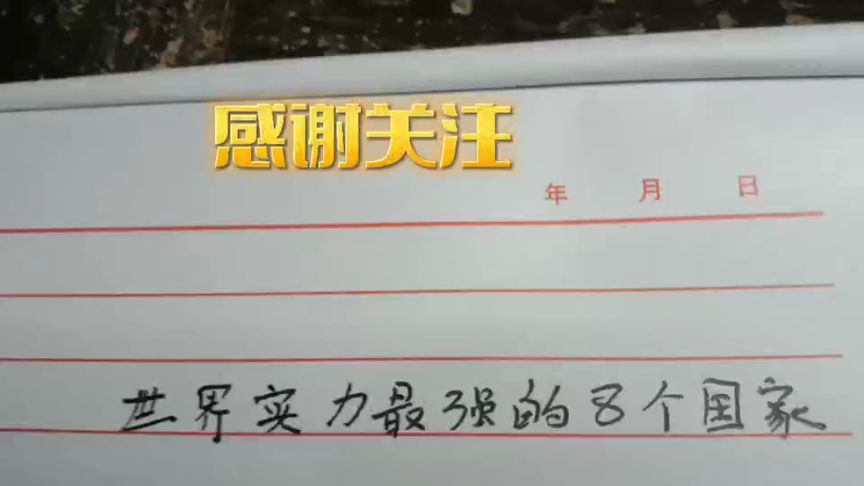 感谢关注
年 月 日
世界实力最强的8个国家